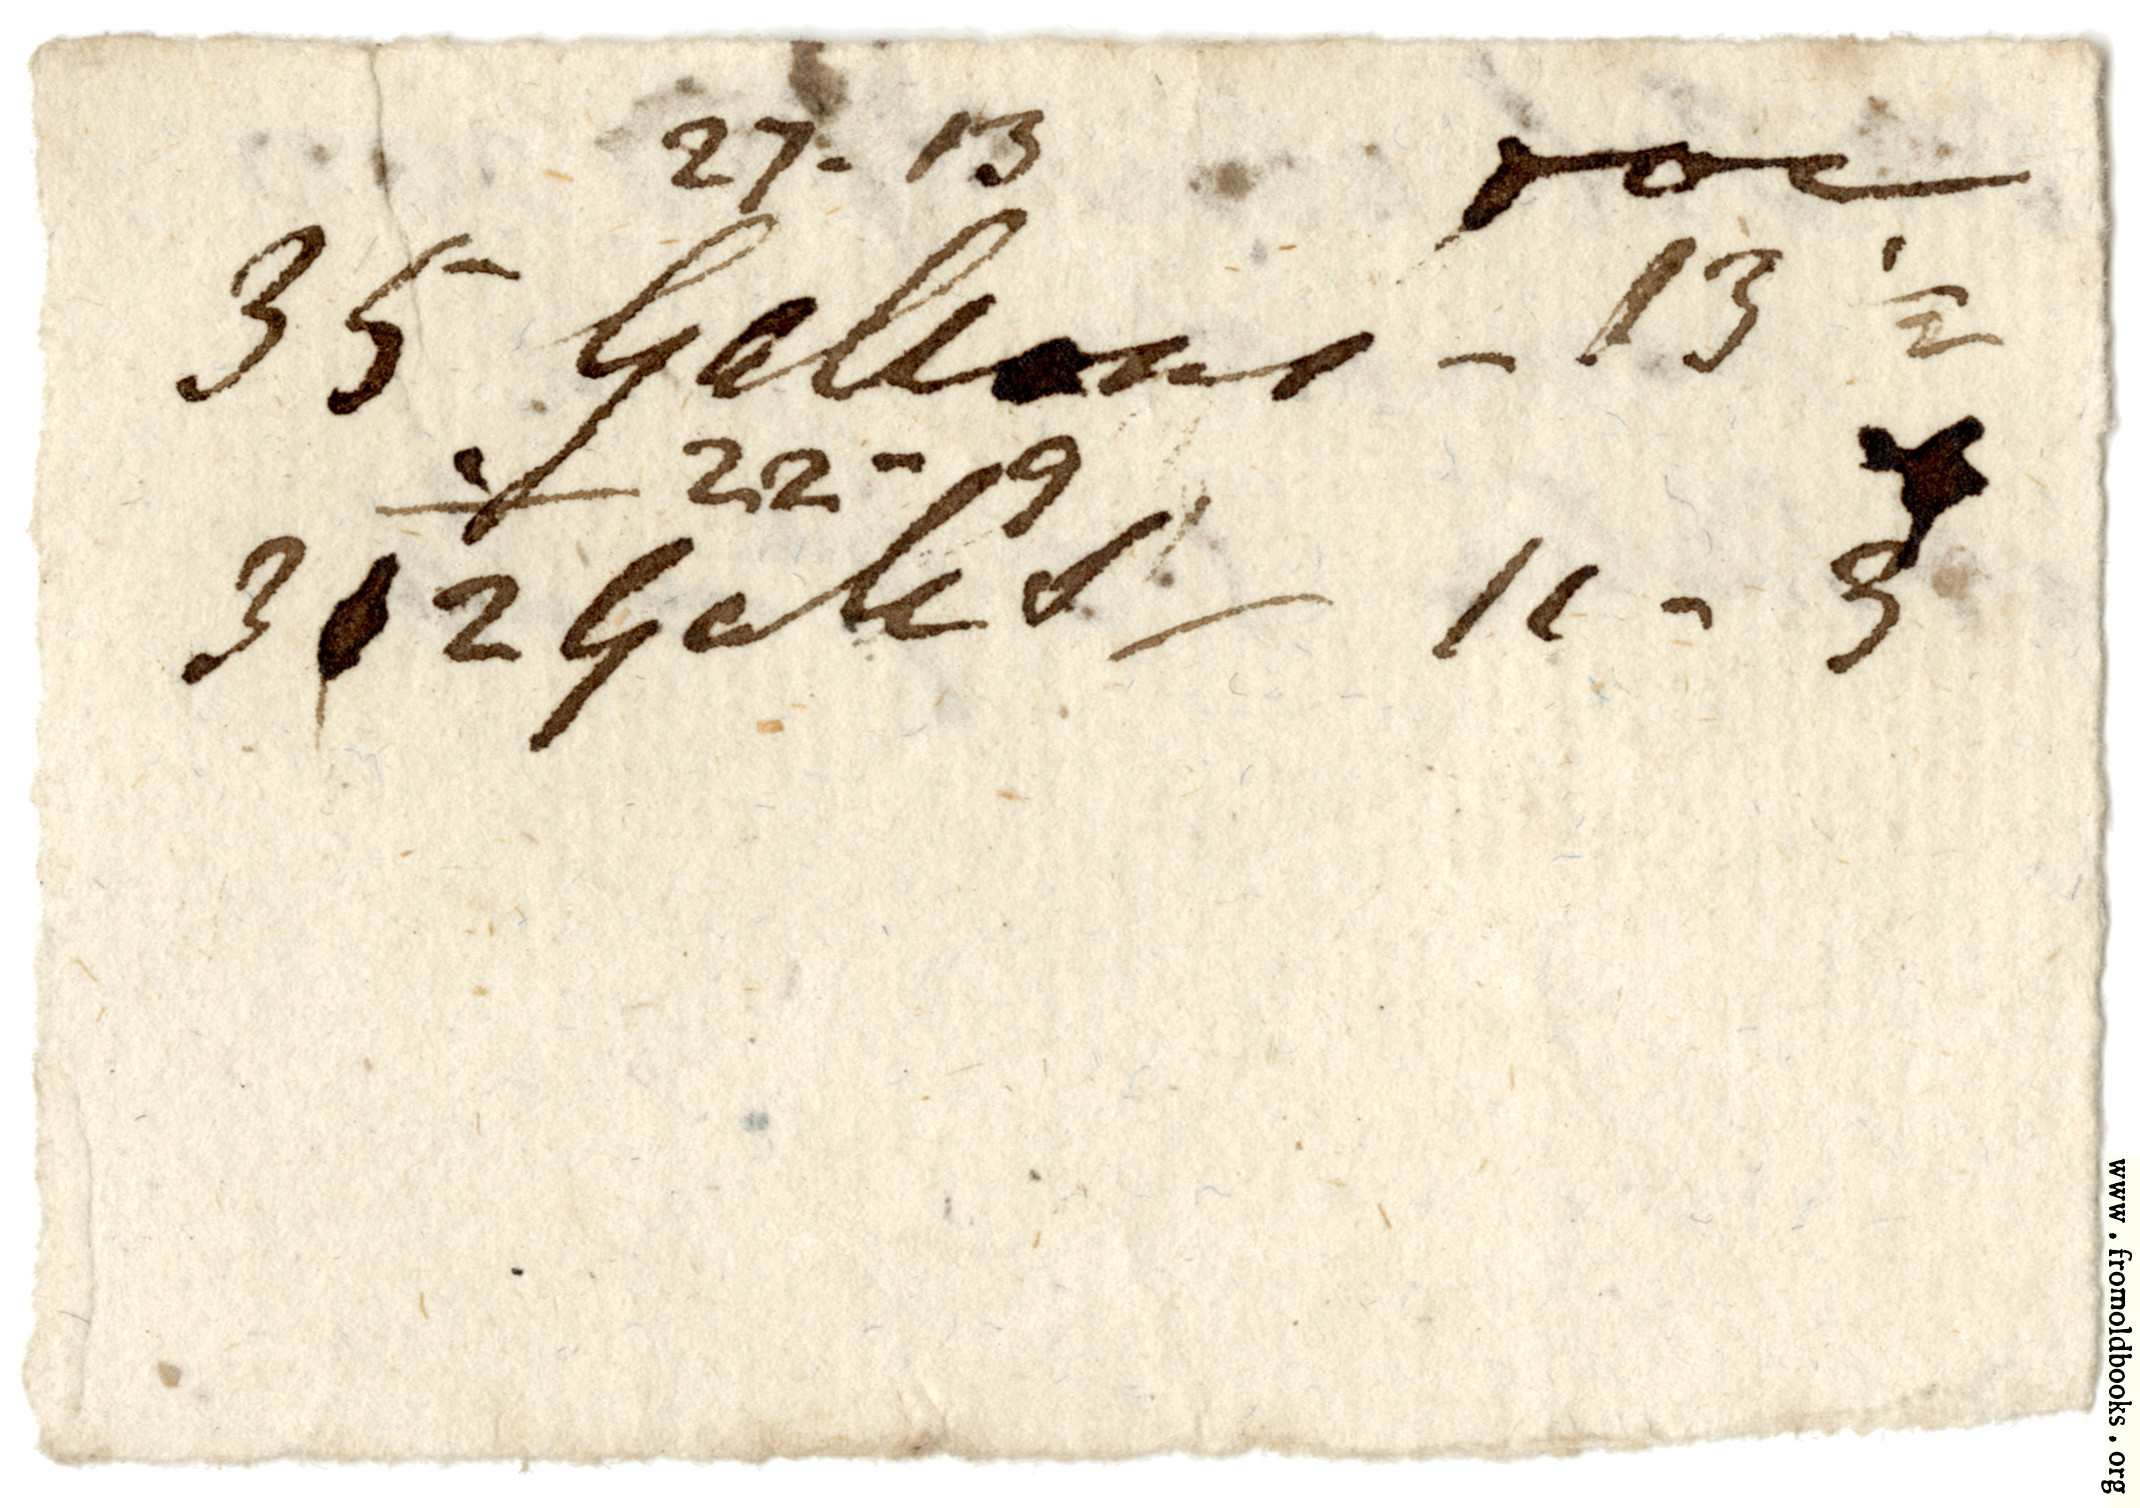 27 - 13
35 Gallons - 13 ½
22 - 9
3 2 Galls 11 - 3
www.fromoldbooks.org